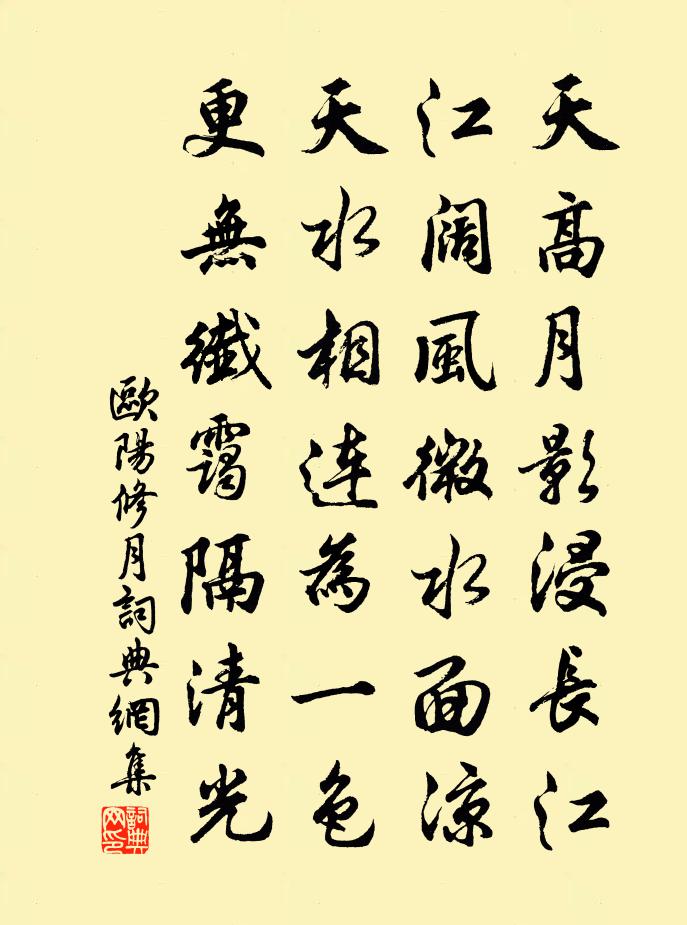 天高月影浸長江
江阔風微水面凉
天水相連為一色
更無纖靄隔清光
歐陽修月詞典網集
詞典网印